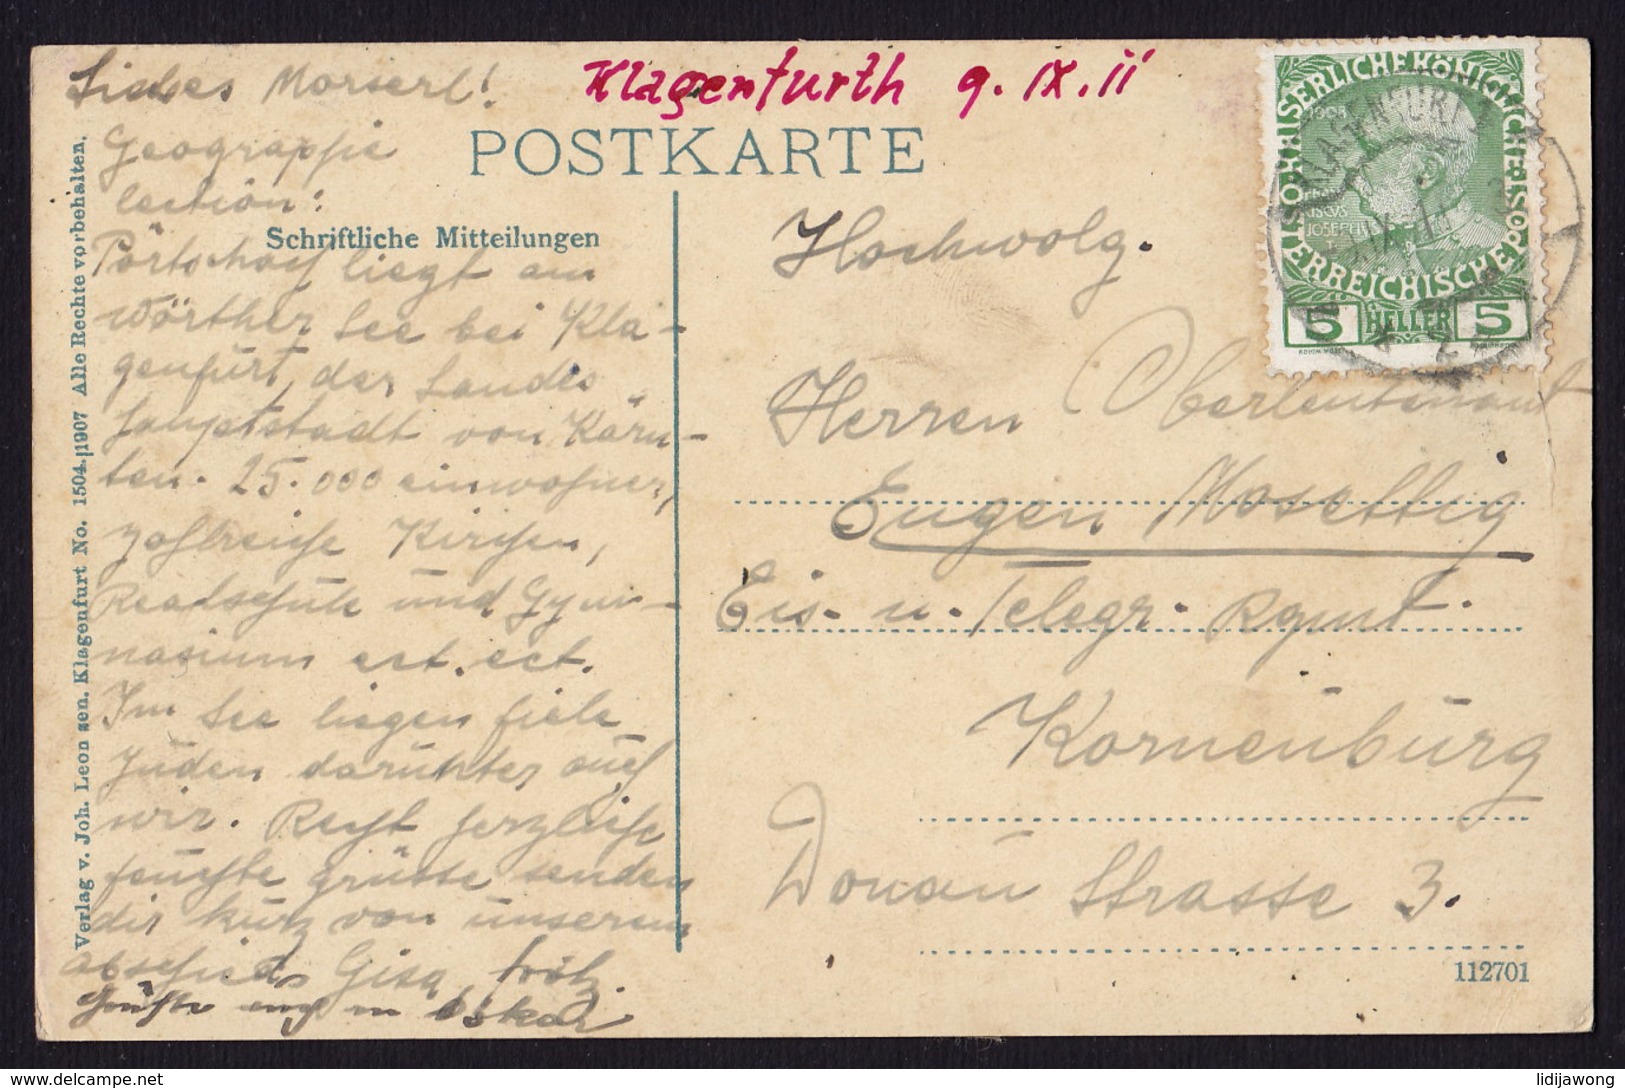 Klagenfurth 9. IX. 11
POSTKARTE
Schriftliche Mitteilungen
Liebes Morserl!
Geographie
lection:
Pörtschach liegt am
Wörther See bei Kla-
genfurt, der Landes
hauptstadt von Kärn-
ten. 25.000 einwohner,
zahlreiche Kirchen,
Realschule und Gym-
nasium ect. ect.
Im See liegen fiele
Juden darunter auch
wir. Recht herzliche
feuchte Grüsse senden
dir kurz vor unserem
abschied Gisa,
Oskar
Hochwolg.
Herren Oberleutenant
Eugen Mosettig
Eis- u. Telegr. Rgmt.
Korneuburg
Donau Strasse 3.
112701
Verlag v. Joh. Leon sen. Klagenfurt No. 1504.|1907 Alle Rechte vorbehalten.
KAISERLICHE KÖNIGLICHE ÖSTERREICHISCHE POST
1908
JOSEPH
5 HELLER 5
KLAGENFURT
lidijawong